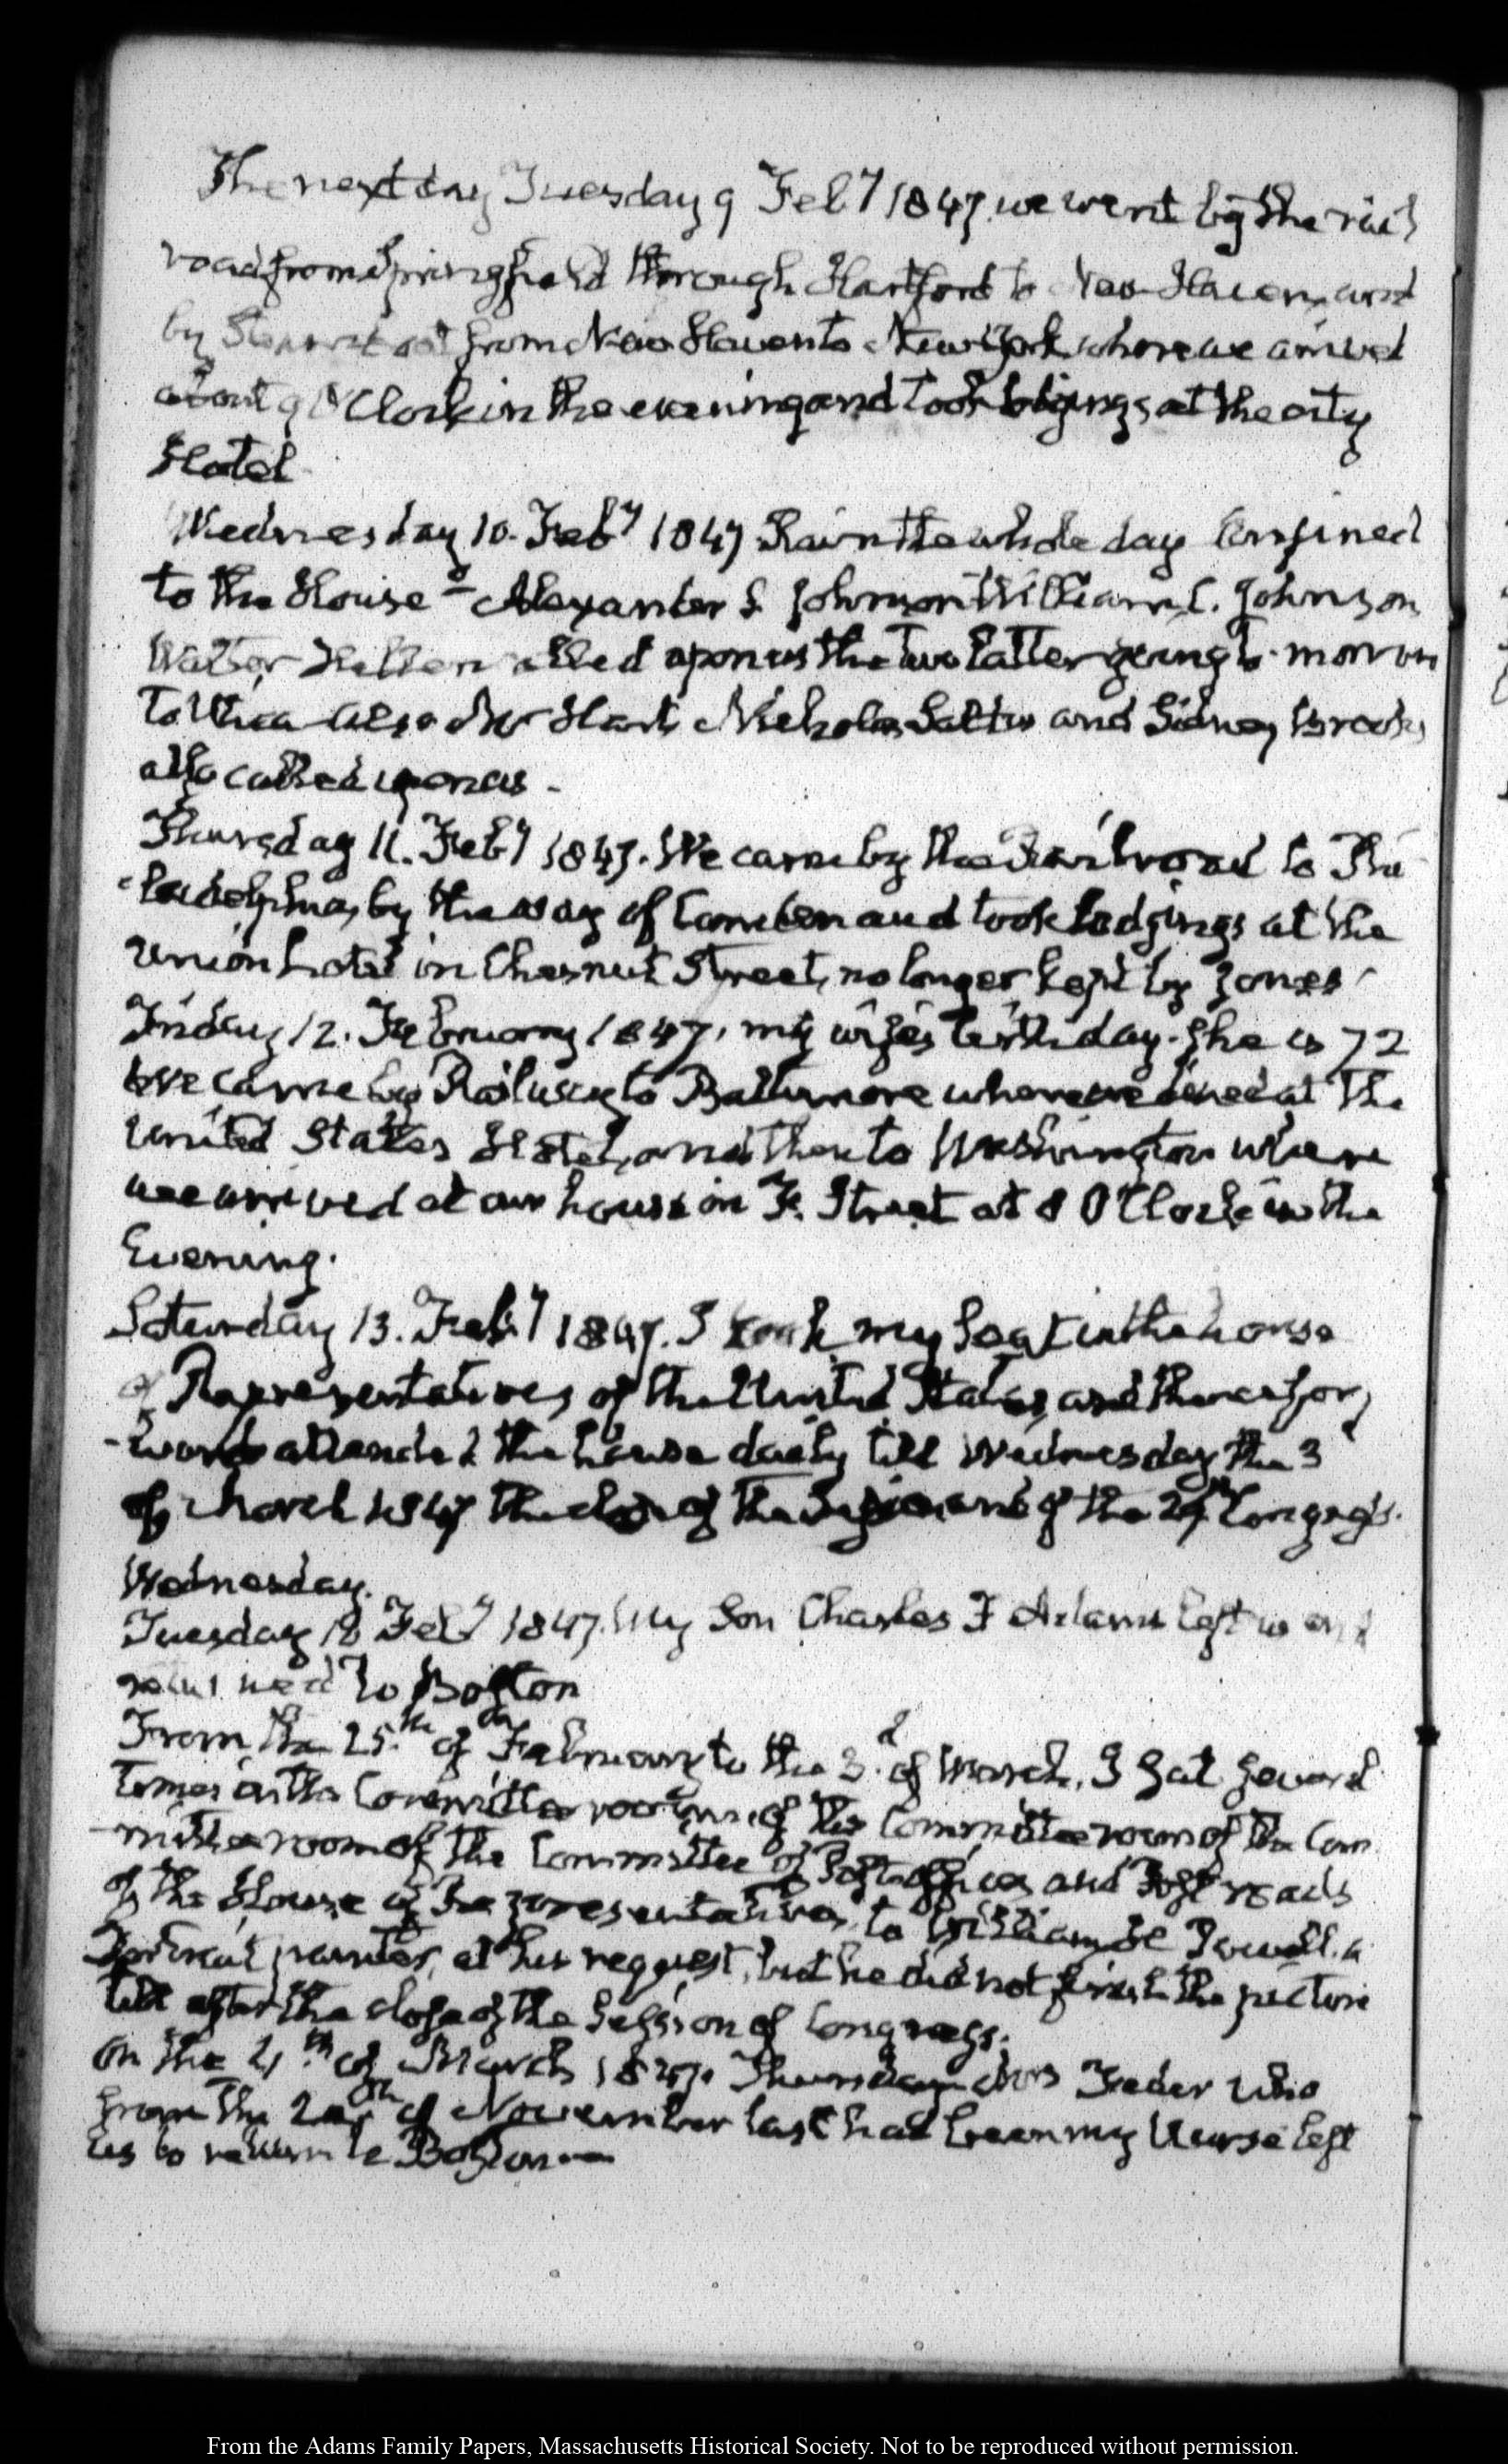 The next day Tuesday 9 Feby 1847 we went by the rail
road from Springfield through Hartford to New Haven, and
by Steamboat from New Haven to New York where we arrived
about 9 O'Clock in the evening and took lodgings at the city
Hotel
Wednesday 10. Feby 1847 Rain the whole day confined
to the House – Alexander S. Johnson William C. Johnson
Walter called upon us the two latter going to-morrow
to Utica also Mr Nicholas and Sidney Brooks
also called upon us –
Thursday 11. Feby 1847. We came by the Railroad to Phi
-ladelphia, by the way of Camden and took lodgings at the
Union hotel in Chesnut Street, no longer kept by Jones
Friday 12. February 1847, my wife's birth day. She is 72
We came by Railway to Baltimore where we dined at the
United States Hotel, and then to Washington where
we arrived at our house in F. Street at 8 O'Clock in the
Evening.
Saturday 13. Feby 1847. I took my seat in the house
of Representatives of the United States, and thencefor
-ward attended the house daily till Wednesday the 3d
of March 1847 the close of the Session, and of the 29th Congress.
Wednesday.
Tuesday Feby 1847. My Son Charles F Adams left us and
returned to Boston
From the 25.th of February to the 3.d of March, I sat several
times in the Committee room, of the Committee room of the Com
-mittee room of the Committee of Post offices and Post roads
of the House of Representatives, to William H Powell. a
Portrait painter, at his request, but he did not finish the picture
till after the close of the Session of Congress.
On the 4.th of March 1847. Thursday Mrs who
from the 20th of November last had been my Nurse left
us to return to Boston. —
From the Adams Family Papers, Massachusetts Historical Society. Not to be reproduced without permission.